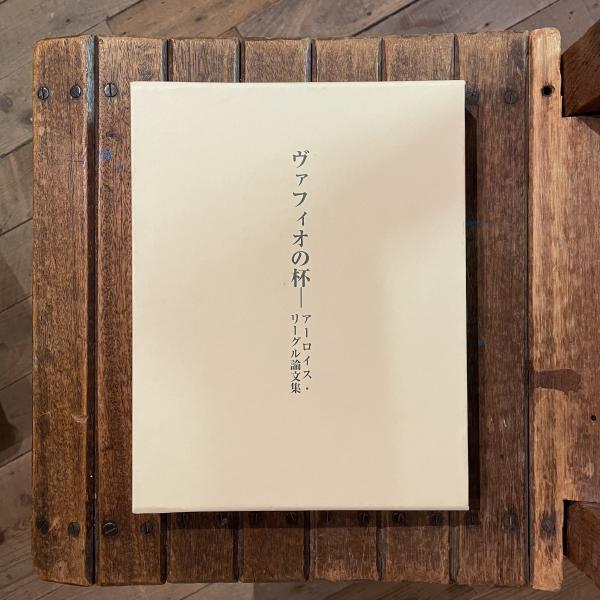 ヴァフィオの杯―
アーロイス・
リーグル論文集